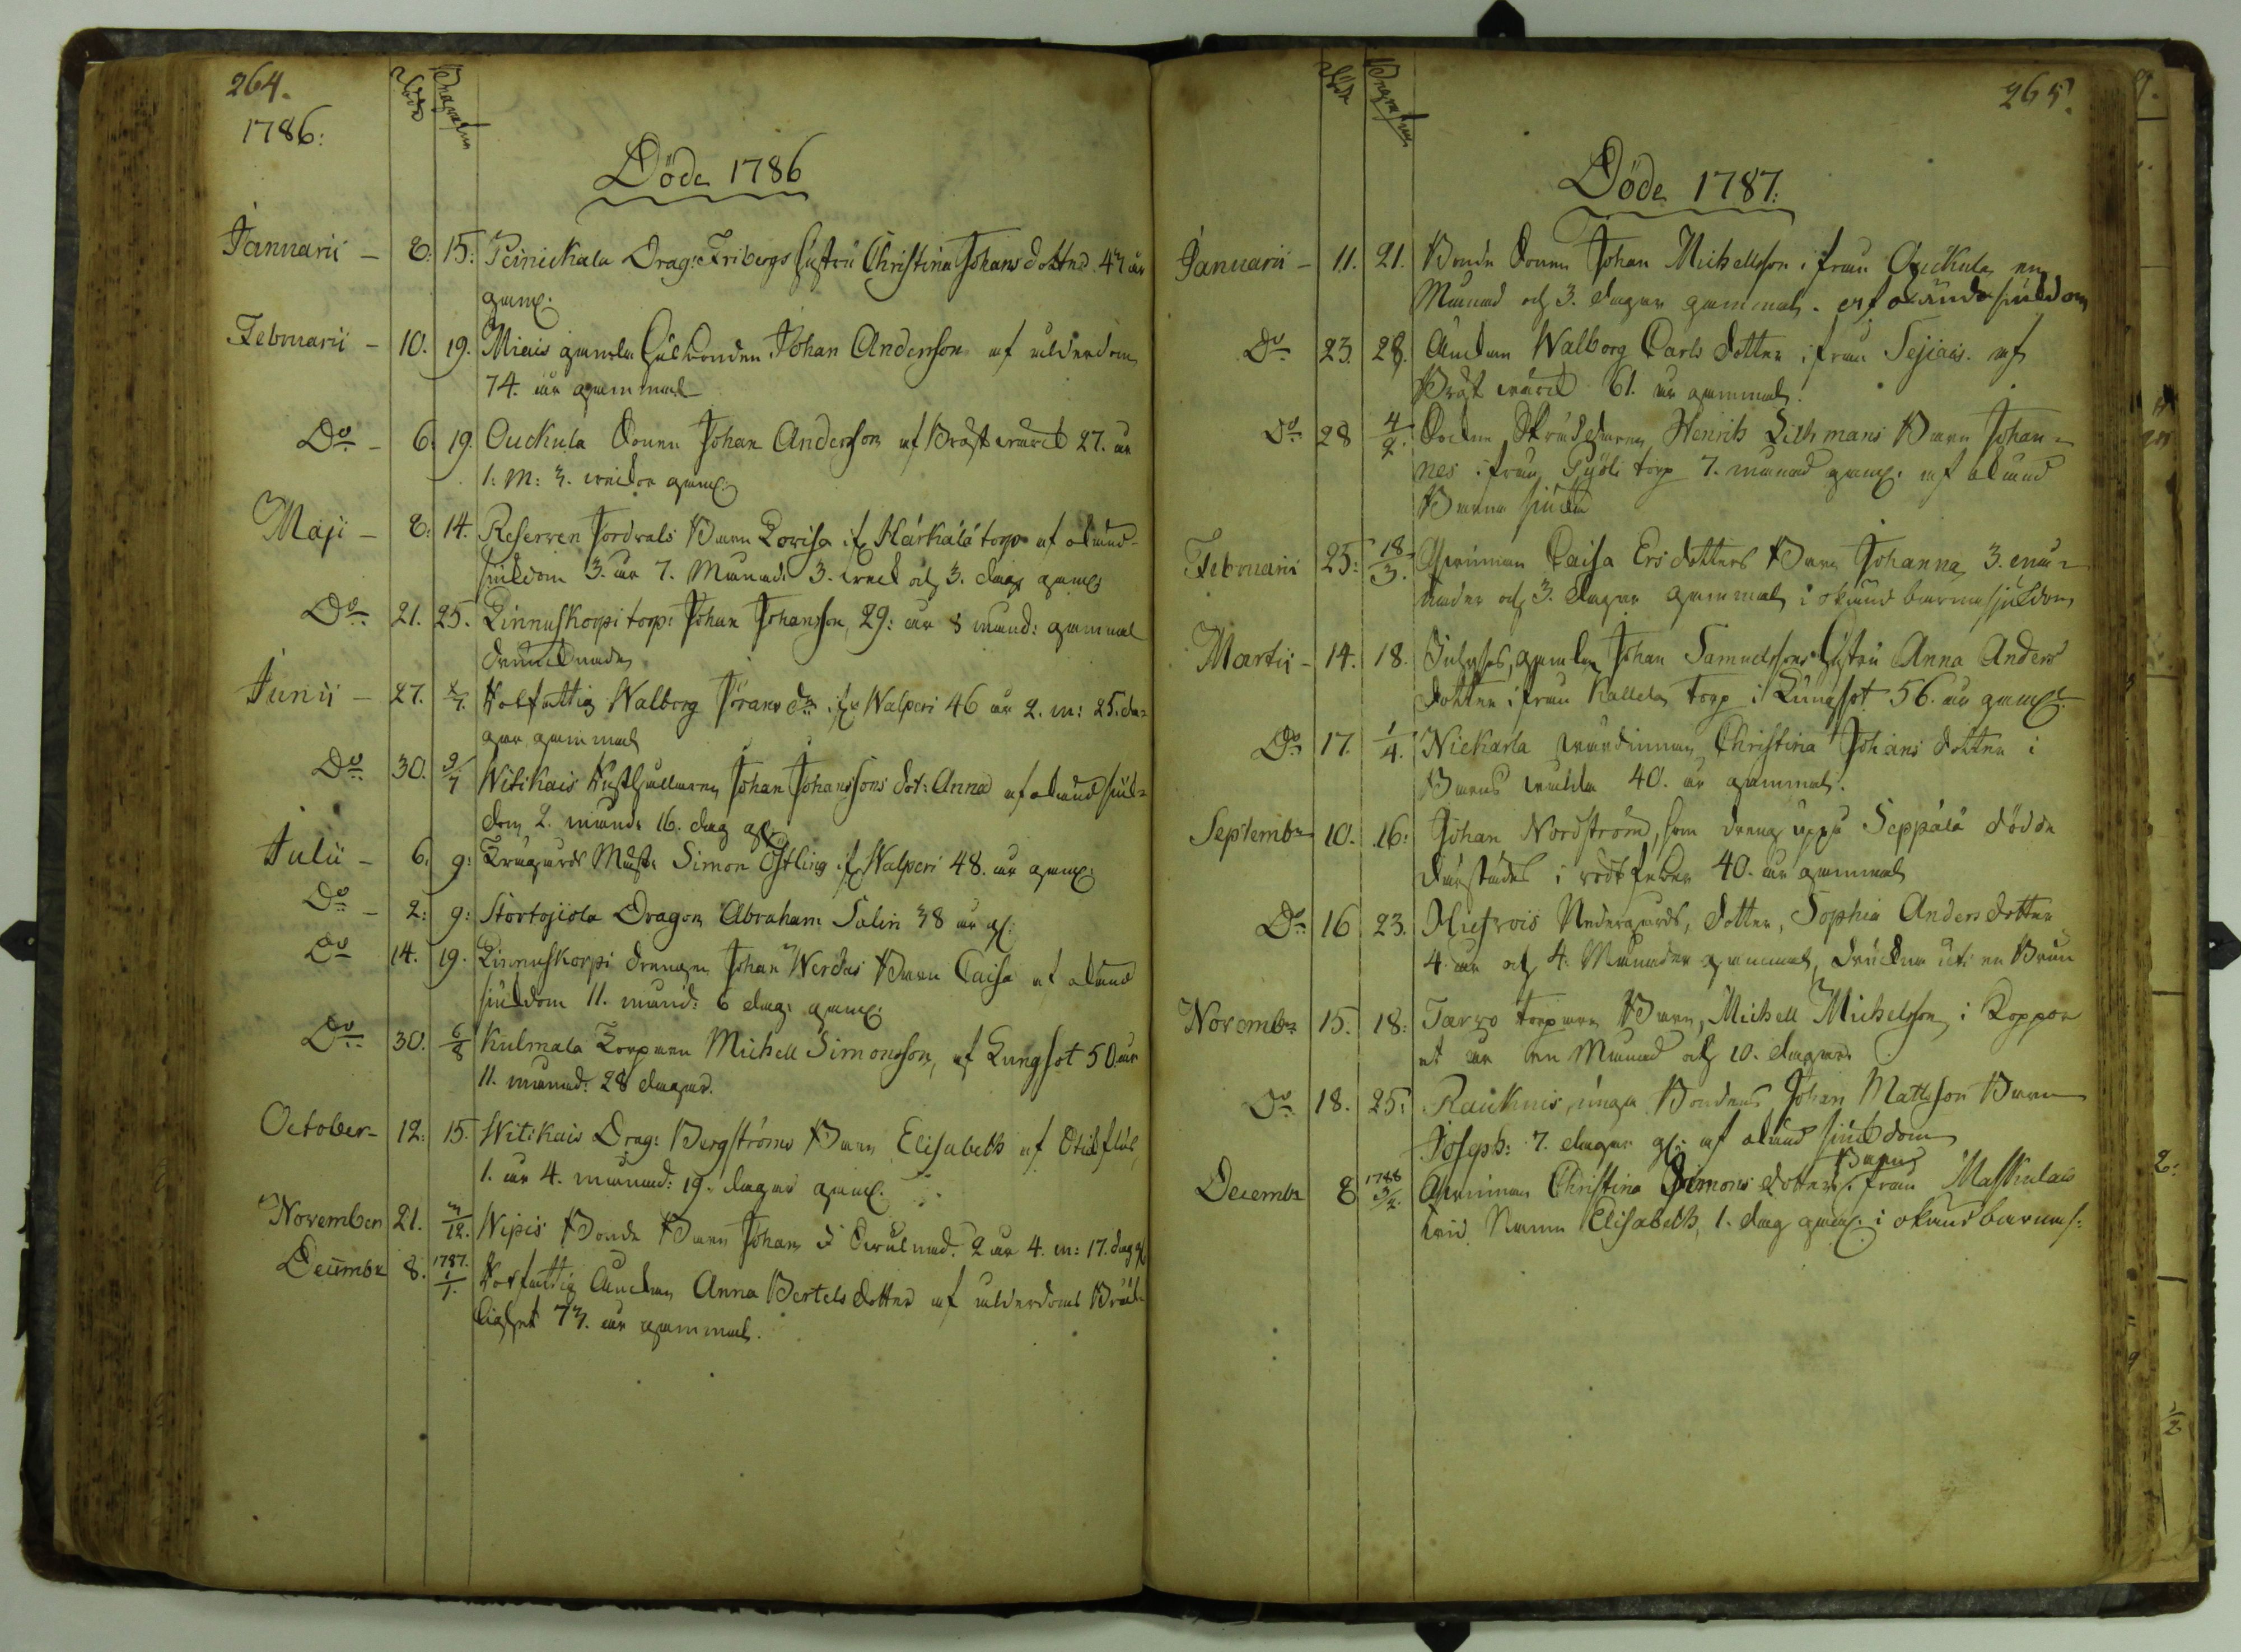 264.
1786:
Döde Begrafne
Döde 1786
Januarii - 8: 15: Peinickala Drag: Fribergs hustru Christina Johans dotter 43 år
gam:
Februarii - 10. 19. Miais gamla Johan Andersson af ålderdom
74. år gammal
Do - 6: 19. Ouckula Sonen Johan Andersson af Bröst wärck 27. år
1: M: 3. weckor gam:
Maji - 8: 14. Reserven Jordvals Barn Lovisa if: Härkälä torp af okänd
siukdom 3. år 7. Månad: 3. weck och 3. dag: gam:
Do 21. 25. Linnuskorpi torp: Johan Johansson, 29: år 8 månd: gammal
drunknade
Junii - 27. 2/7. Walborg Jörans dr: if: Walperi 46 år 2. m: 25. da=
gar gammal
Do 30. 9/7 Witikais Johan Johanssons dot: Anna af okänd siuk=
dom 2. månd: 16. dag gl:
Julii - 6. 9: Simon Östling if: Walperi 48. år gam:
Do - 2: 9: Stortojiola Dragon Abraham Salin 38 år gl:
Do 14. 19. Linnuskorpi drengen Johan Werdes Barn Caisa af okänd
siukdom 11. månd: 6 dag: gam:
Do 30. 6/8 Kulmala Torparen Michell Simonsson, af Lungsot 50 år
11. månad: 28 dagar.
October - 12: 15. Witikais Drag: Bergströms Barn Elisabeth af
1. år 4. månad: 19. dagar gam:
November 21. 3/12. Wipis Bonde Barn Johan 2 år 4. m: 17. dag gl
Decembr 8. 1787. 1/1. Anna Bertels dotter af ålderdoms Bräck=
lighet 73. år gammal.
265.
Döde Begrafne
Döde 1787:
Januarii - 11. 21. Bonde Sonen Johan Michellsson ifrån Ouckula en
Månad och 3. dagar gammal. af okände siukdom
Do 23. 28. Änckan Walborg Carls dotter ifrån Sejiais. af
Bröst wärck 61. år gammal.
Do 28 4/2. Skräddaren Henrik Lithmans Barn Johan=
nes ifrån Pyöli torp 7. månad gam: af okänd
Barna siuka
Februarii 25: 18/3. Caisa Ers dotters Barn Johanna 3. måna=
nader och 3. dagar gammal i okänd barnasjukdom
Martii - 14. 18. gamla Johan Samuelssons Hustru Anna Anders
dotter ifrån Kallela torp i Lungsot 56. år gam:
Do 17. 1/4. Niekarla wärdinnan Christina Johans dotter i
Barns 40. år gammal.
Septembr 10. 16: Johan Nordström, som dreng uppå Seppälä dödde
därstädes i rötfeber 40. år gammal
Do 16 23. Hiefvois Nedergårds, dotter, Sophia Anders dotter
4. år och 4. Månader gammal, druckna uti en Brun
Novembr 15. 18: Tarvo torpare Barn, Michell Michelsson i Koppor
et år en Månad och 10. dagar.
Do 18. 25: Raukinis unga Bondens Johan Mattsson Barn
Joseph: 7. dagar gl: af okänd siukdom
Decembr 8 1788 3/2. Christina Simons dotters Barn ifrån Maskulais
wid Namn Elisabeth, 1. dag gam: i okänd barnas: